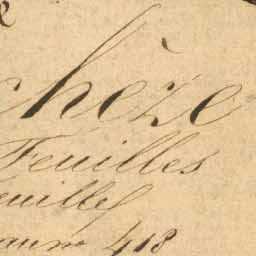 chèze
Feuilles
euilles
418